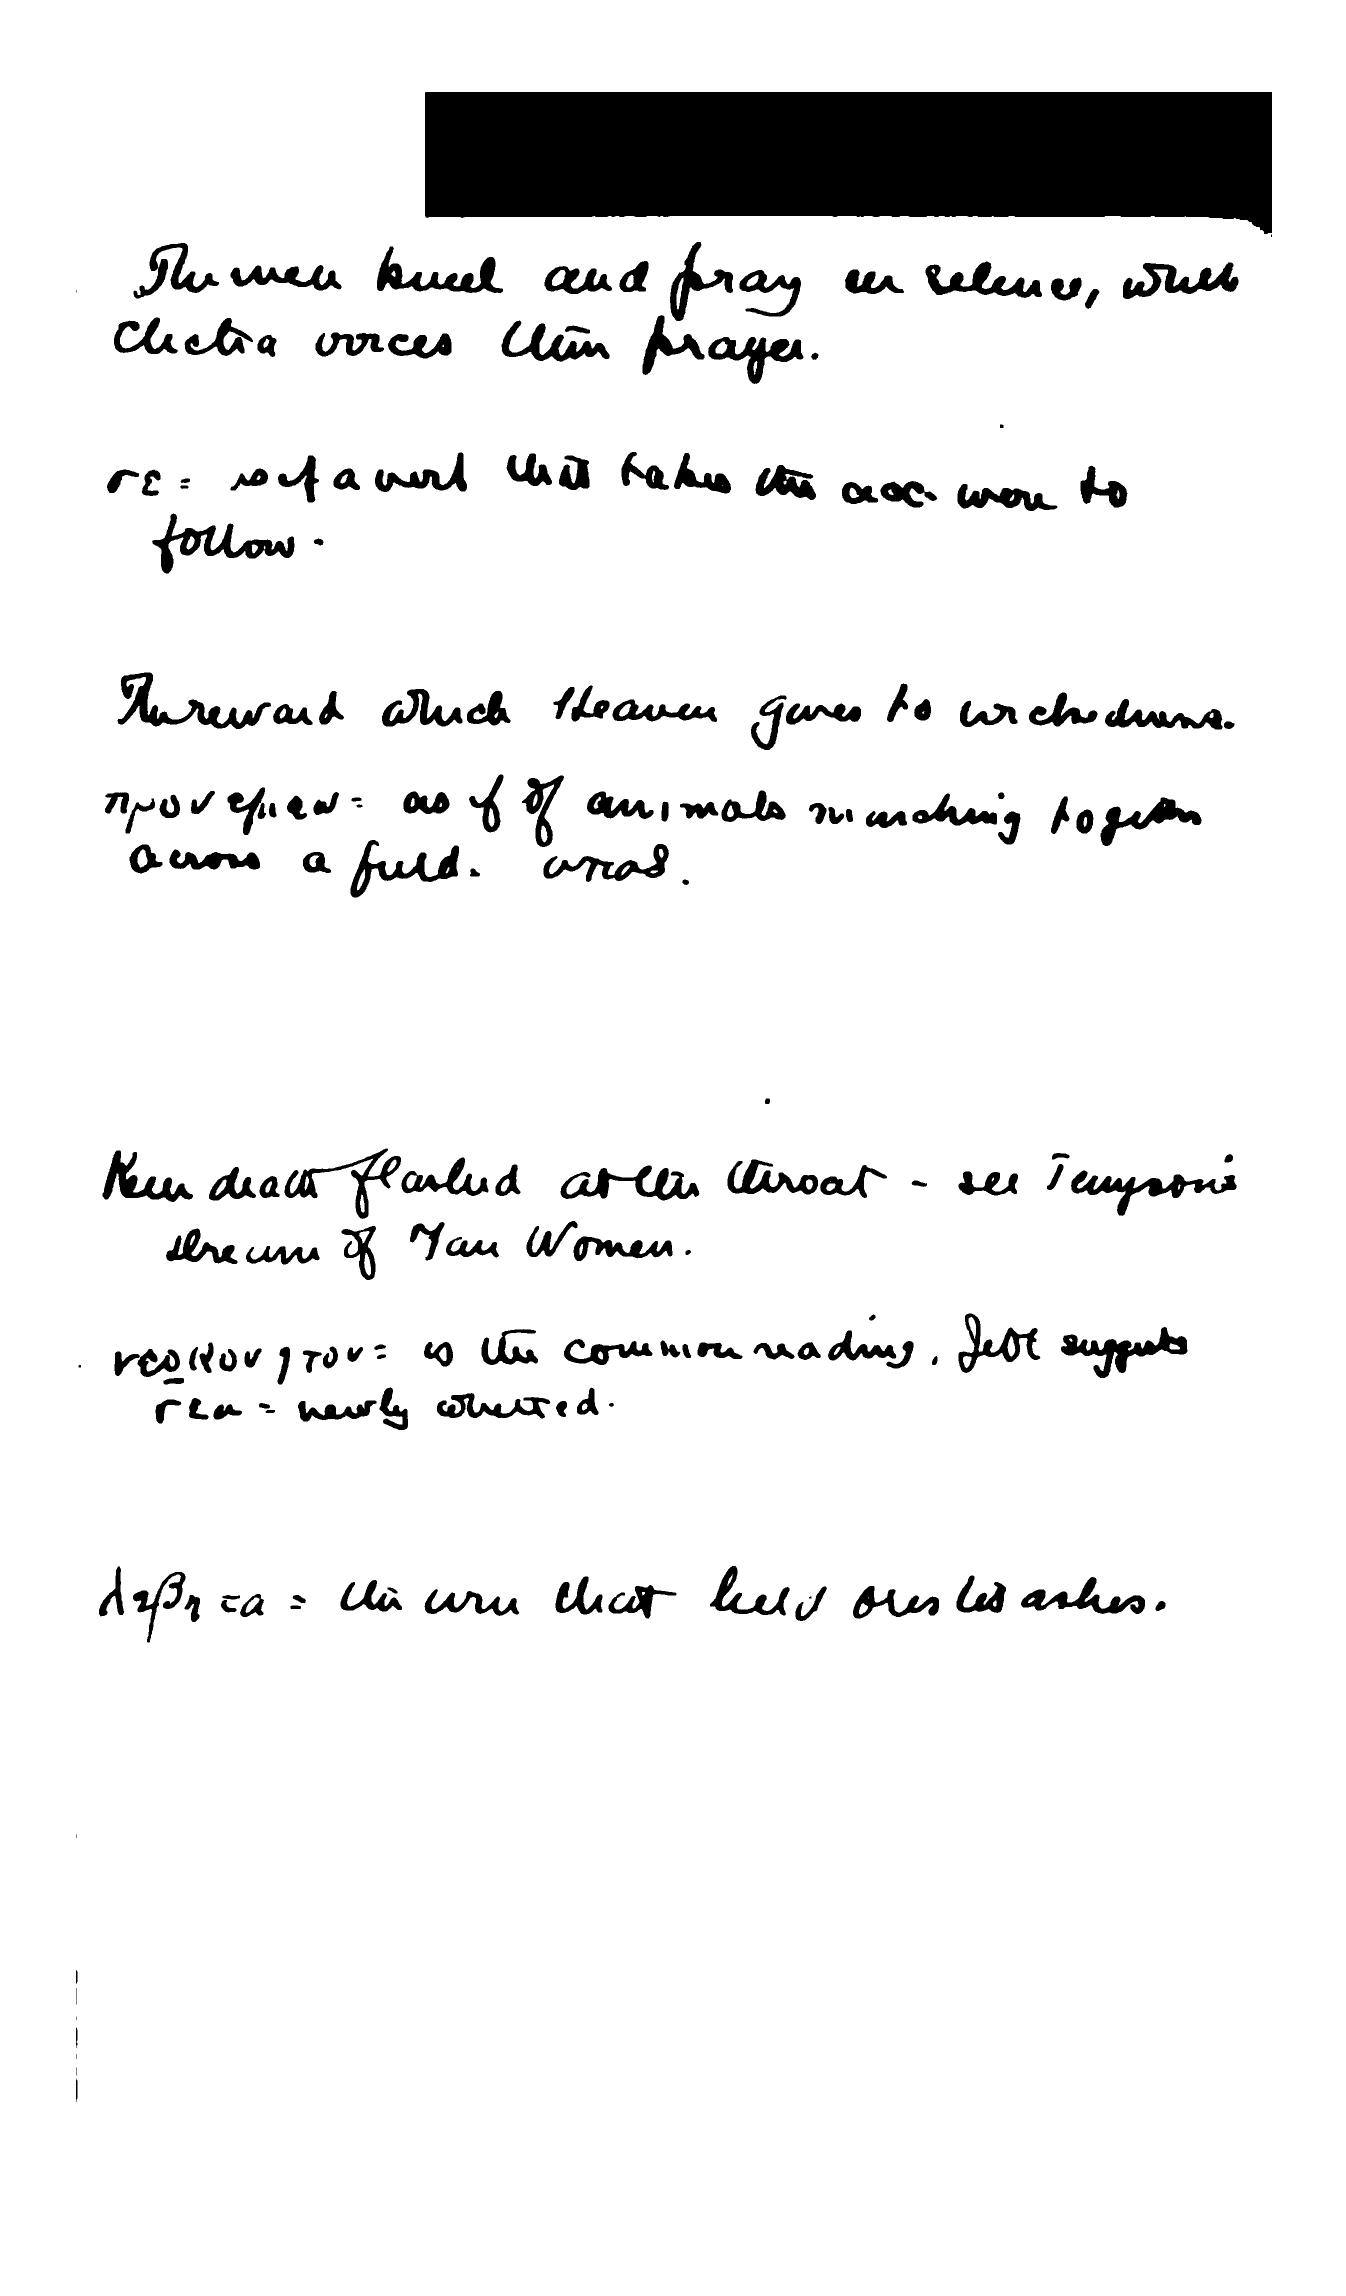 The men kneel and pray in silence, while
Electra voices their prayer.
σε = as if a verb that takes the acc. were to
follow.
The reward which Heaven gives to wickedness.
προνεμεται = as if of animals marching together
across a field.
Keen death flashed at the throat - see Tennyson's
dream of Fair Women.
νεοκονητον = is the common reading. Jebb suggests
newly whetted.
λεβητα = the urn that held Orestes ashes.